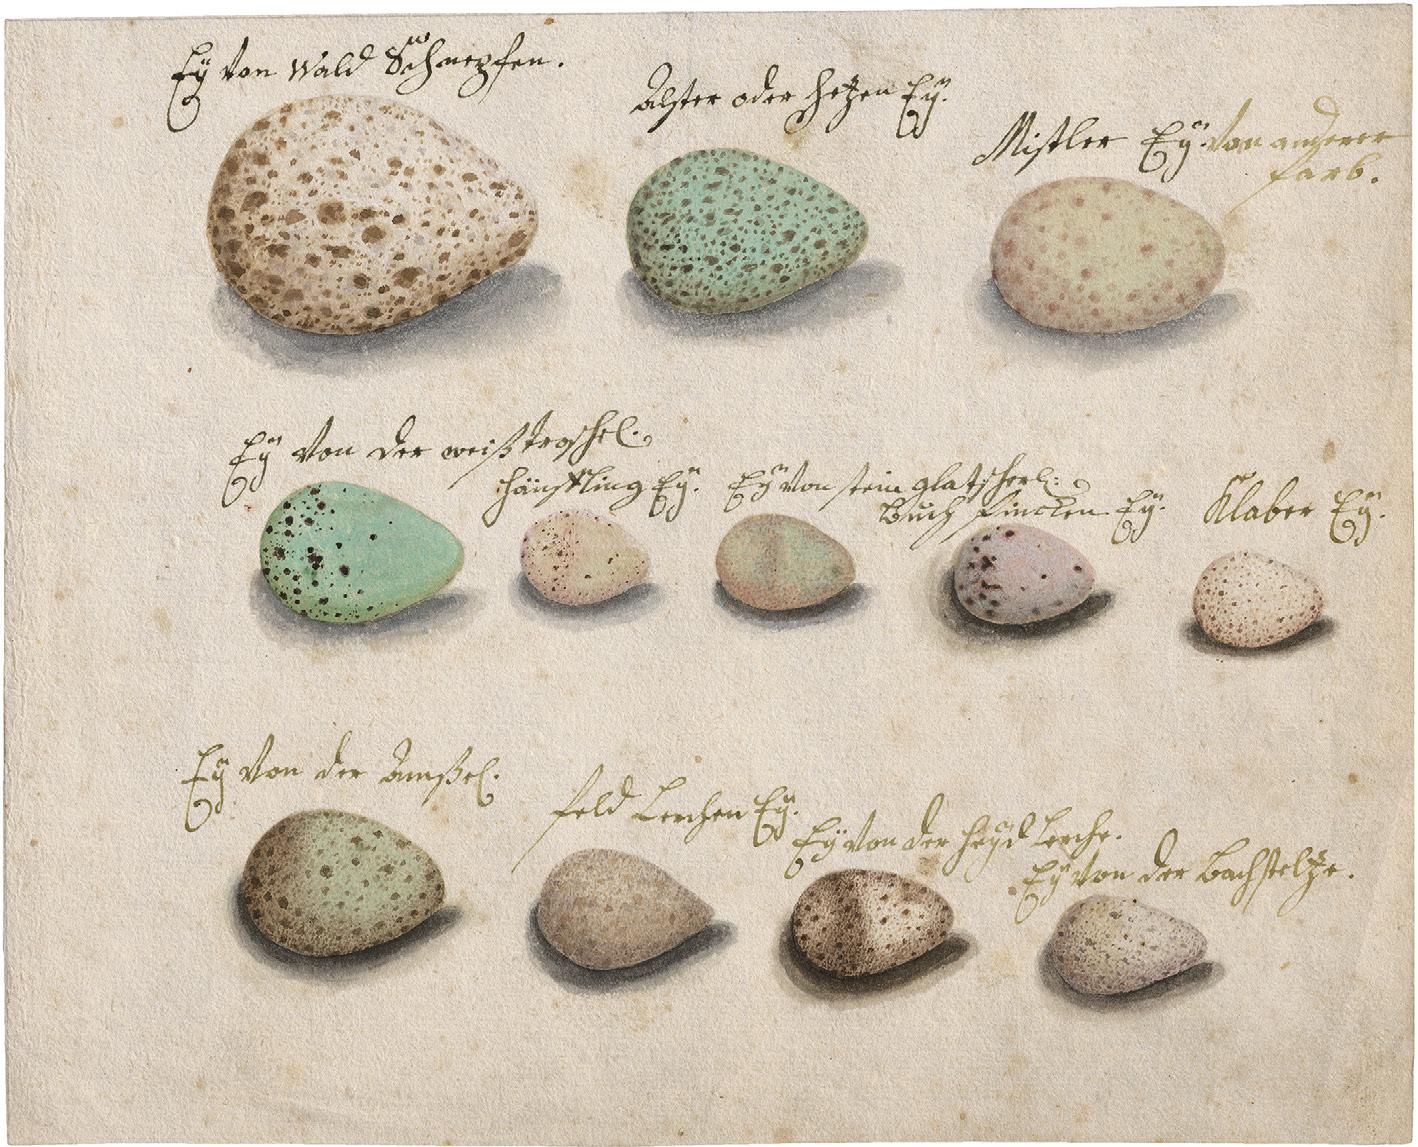 Eÿ von Wald Schnepfen.
Alster oder Hetzen Eÿ.
Mistler Eÿ von anderer
farb.
Eÿ von der weiß troschel.
Hänfling Eÿ.
Eÿ von stein glatscherl:
Buch fincken Eÿ.
Klaber Eÿ.
Eÿ von der Amßel.
feld Lerchen Eÿ.
Eÿ von der Heÿd Lerche.
Eÿ von der Bachsteltze.